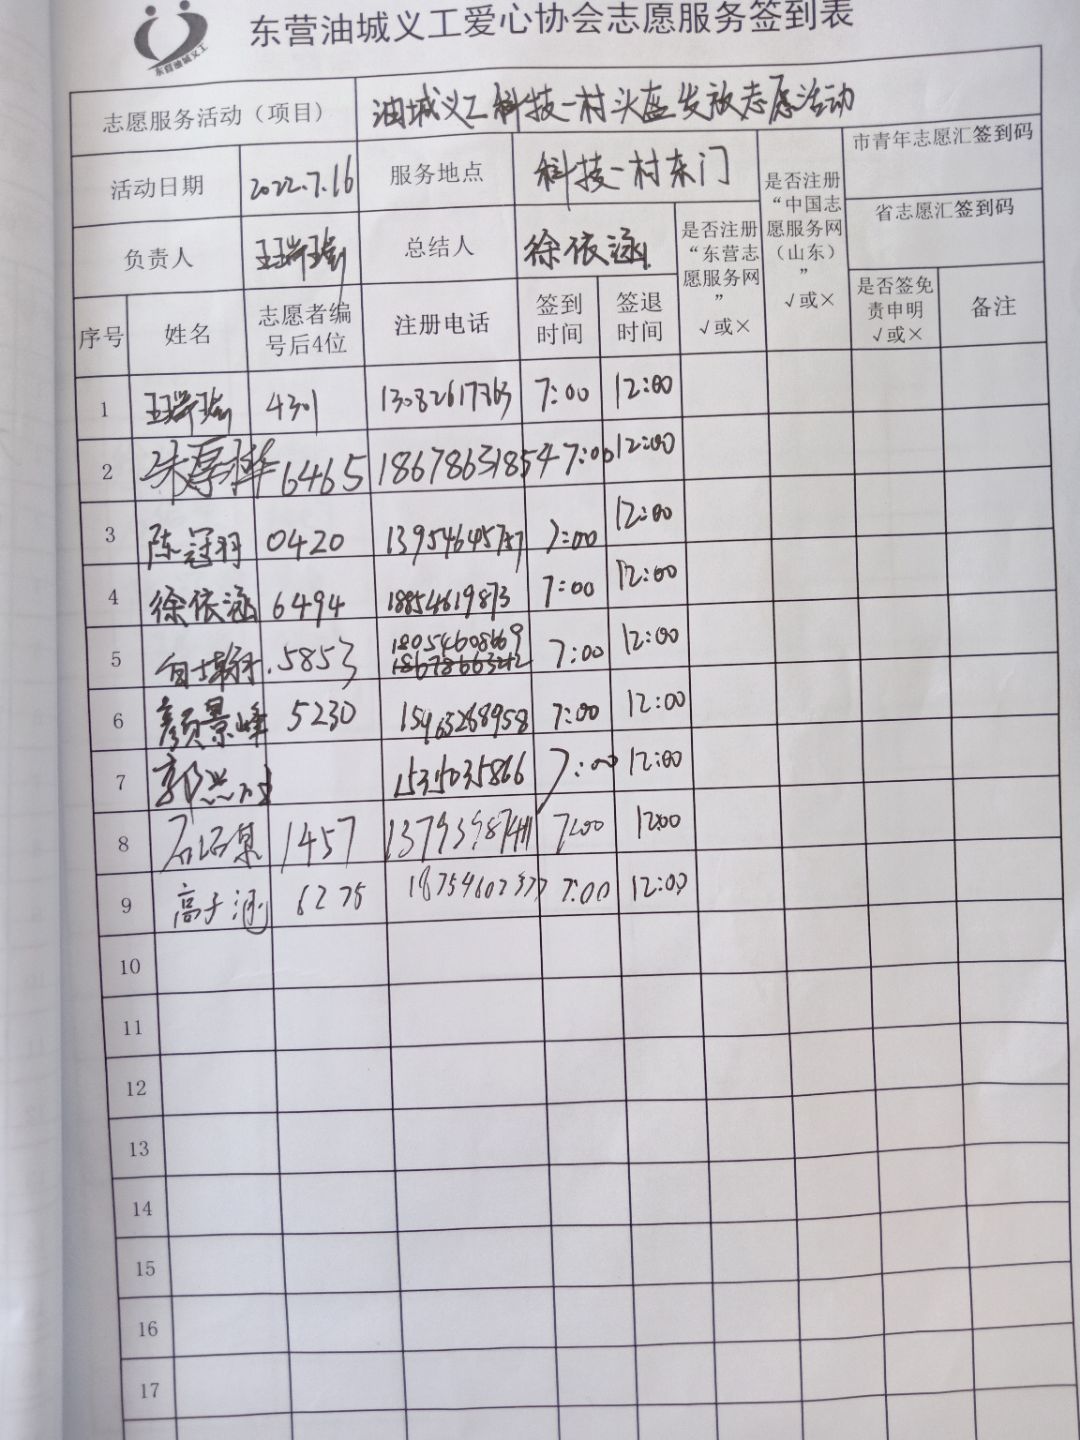 东营油城义工爱心协会志愿服务签到表
东营油城义工
志愿服务活动（项目） 油城义工科技一村头盔发放志愿活动
活动日期 2022.7.16 服务地点 科技一村东门
负责人 总结人 徐依涵
是否注册“东营志愿服务网” √或×
是否注册“中国志愿服务网（山东）” √或×
市青年志愿汇签到码
省志愿汇签到码
序号 姓名 志愿者编号后4位 注册电话 签到时间 签退时间 是否签免责申明 √或× 备注
1 4301 13082617363 7:00 12:00
2 6465 18678631854 7:00 12:00
3 陈冠羽 0420 13954645757 7:00 12:00
4 徐依涵 6494 18854619873 7:00 12:00
5 5853 18054608669 7:00 12:00
6 颜景峰 5230 15463268958 7:00 12:00
7 7:00 12:00
8 1457 7:00 12:00
9 高子涵 6275 7:00 12:00
10
11
12
13
14
15
16
17